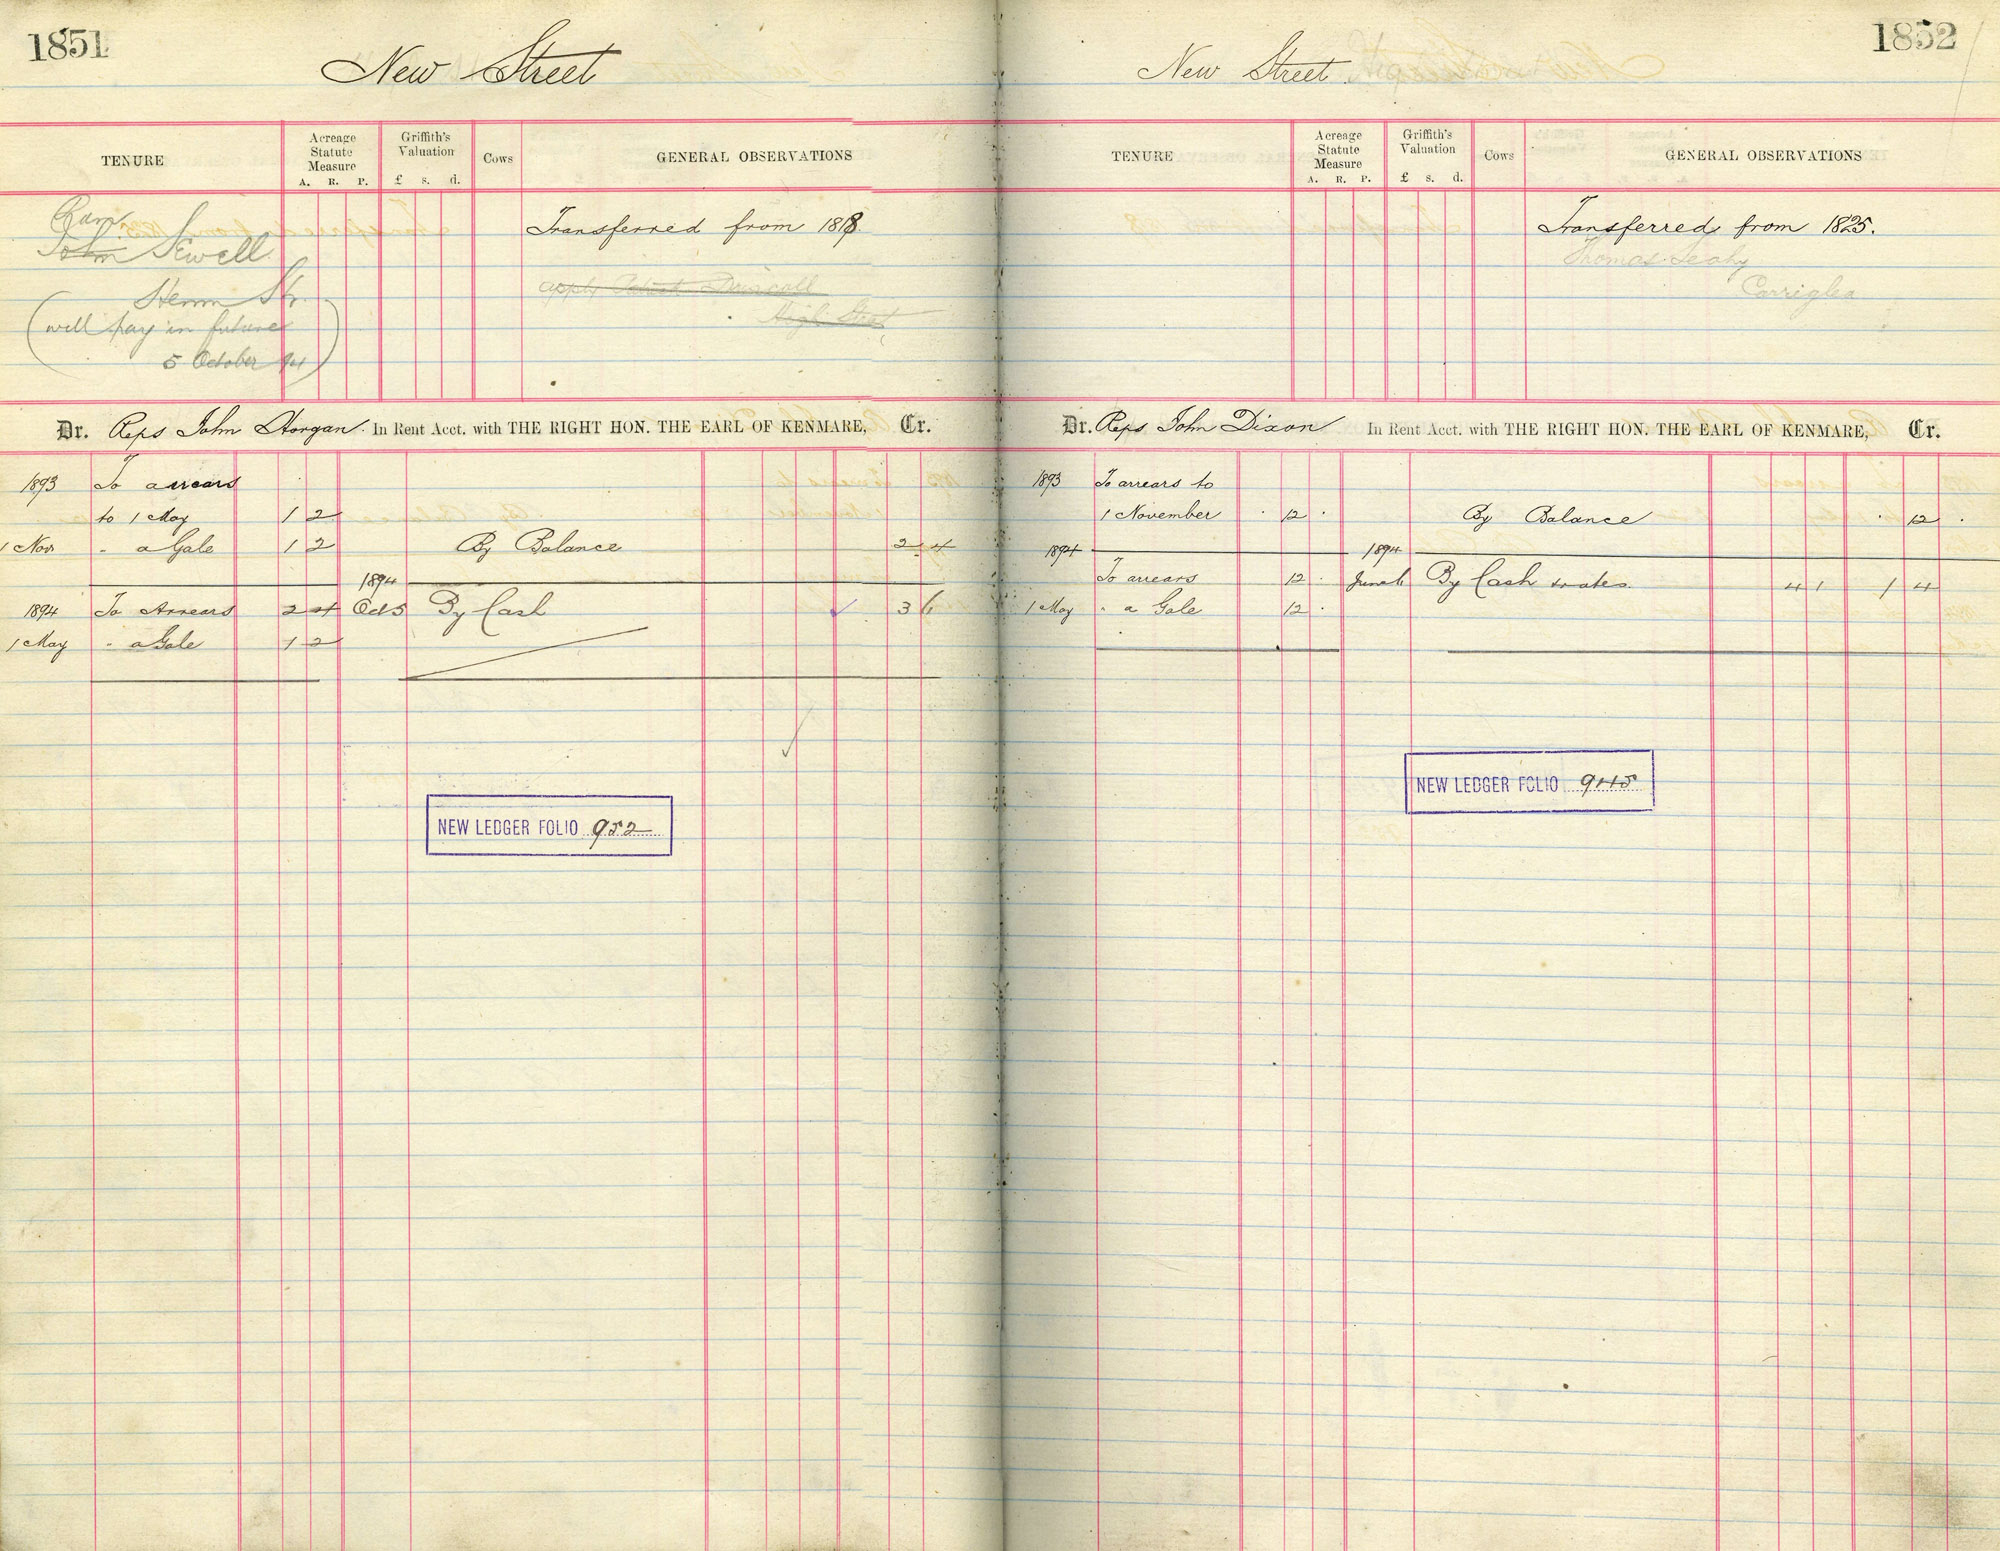 1851
New Street
TENURE
Acreage Statute Measure
A. R. P.
Griffith's Valuation
£ s. d.
Cows
GENERAL OBSERVATIONS
John Sewell
Henn St.
(will pay in future
5 October 94)
Transferred from 1818
apply Patrick Driscoll
High Street
Dr. Reps John Horgan. In Rent Acct. with THE RIGHT HON. THE EARL OF KENMARE, Cr.
1893 To arrears
to 1 May 1 2
1 Nov " a Gale 1 2 By Balance 2 4
1894
1894 To Arrears 2 4 Oct 5 By Cash 3 6
1 May " a Gale 1 2
NEW LEDGER FOLIO 952
1852
New Street.
TENURE
Acreage Statute Measure
A. R. P.
Griffith's Valuation
£ s. d.
Cows
GENERAL OBSERVATIONS
Transferred from 1825.
Thomas Leahy
Carriglea
Dr. Reps John Dixon In Rent Acct. with THE RIGHT HON. THE EARL OF KENMARE, Cr.
1893 To arrears to
1 November 12 By Balance 12
1894 1894
To arrears 12 June 6 By Cash & rates 4 1 1 4
1 May " a Gale 12
NEW LEDGER FOLIO 945